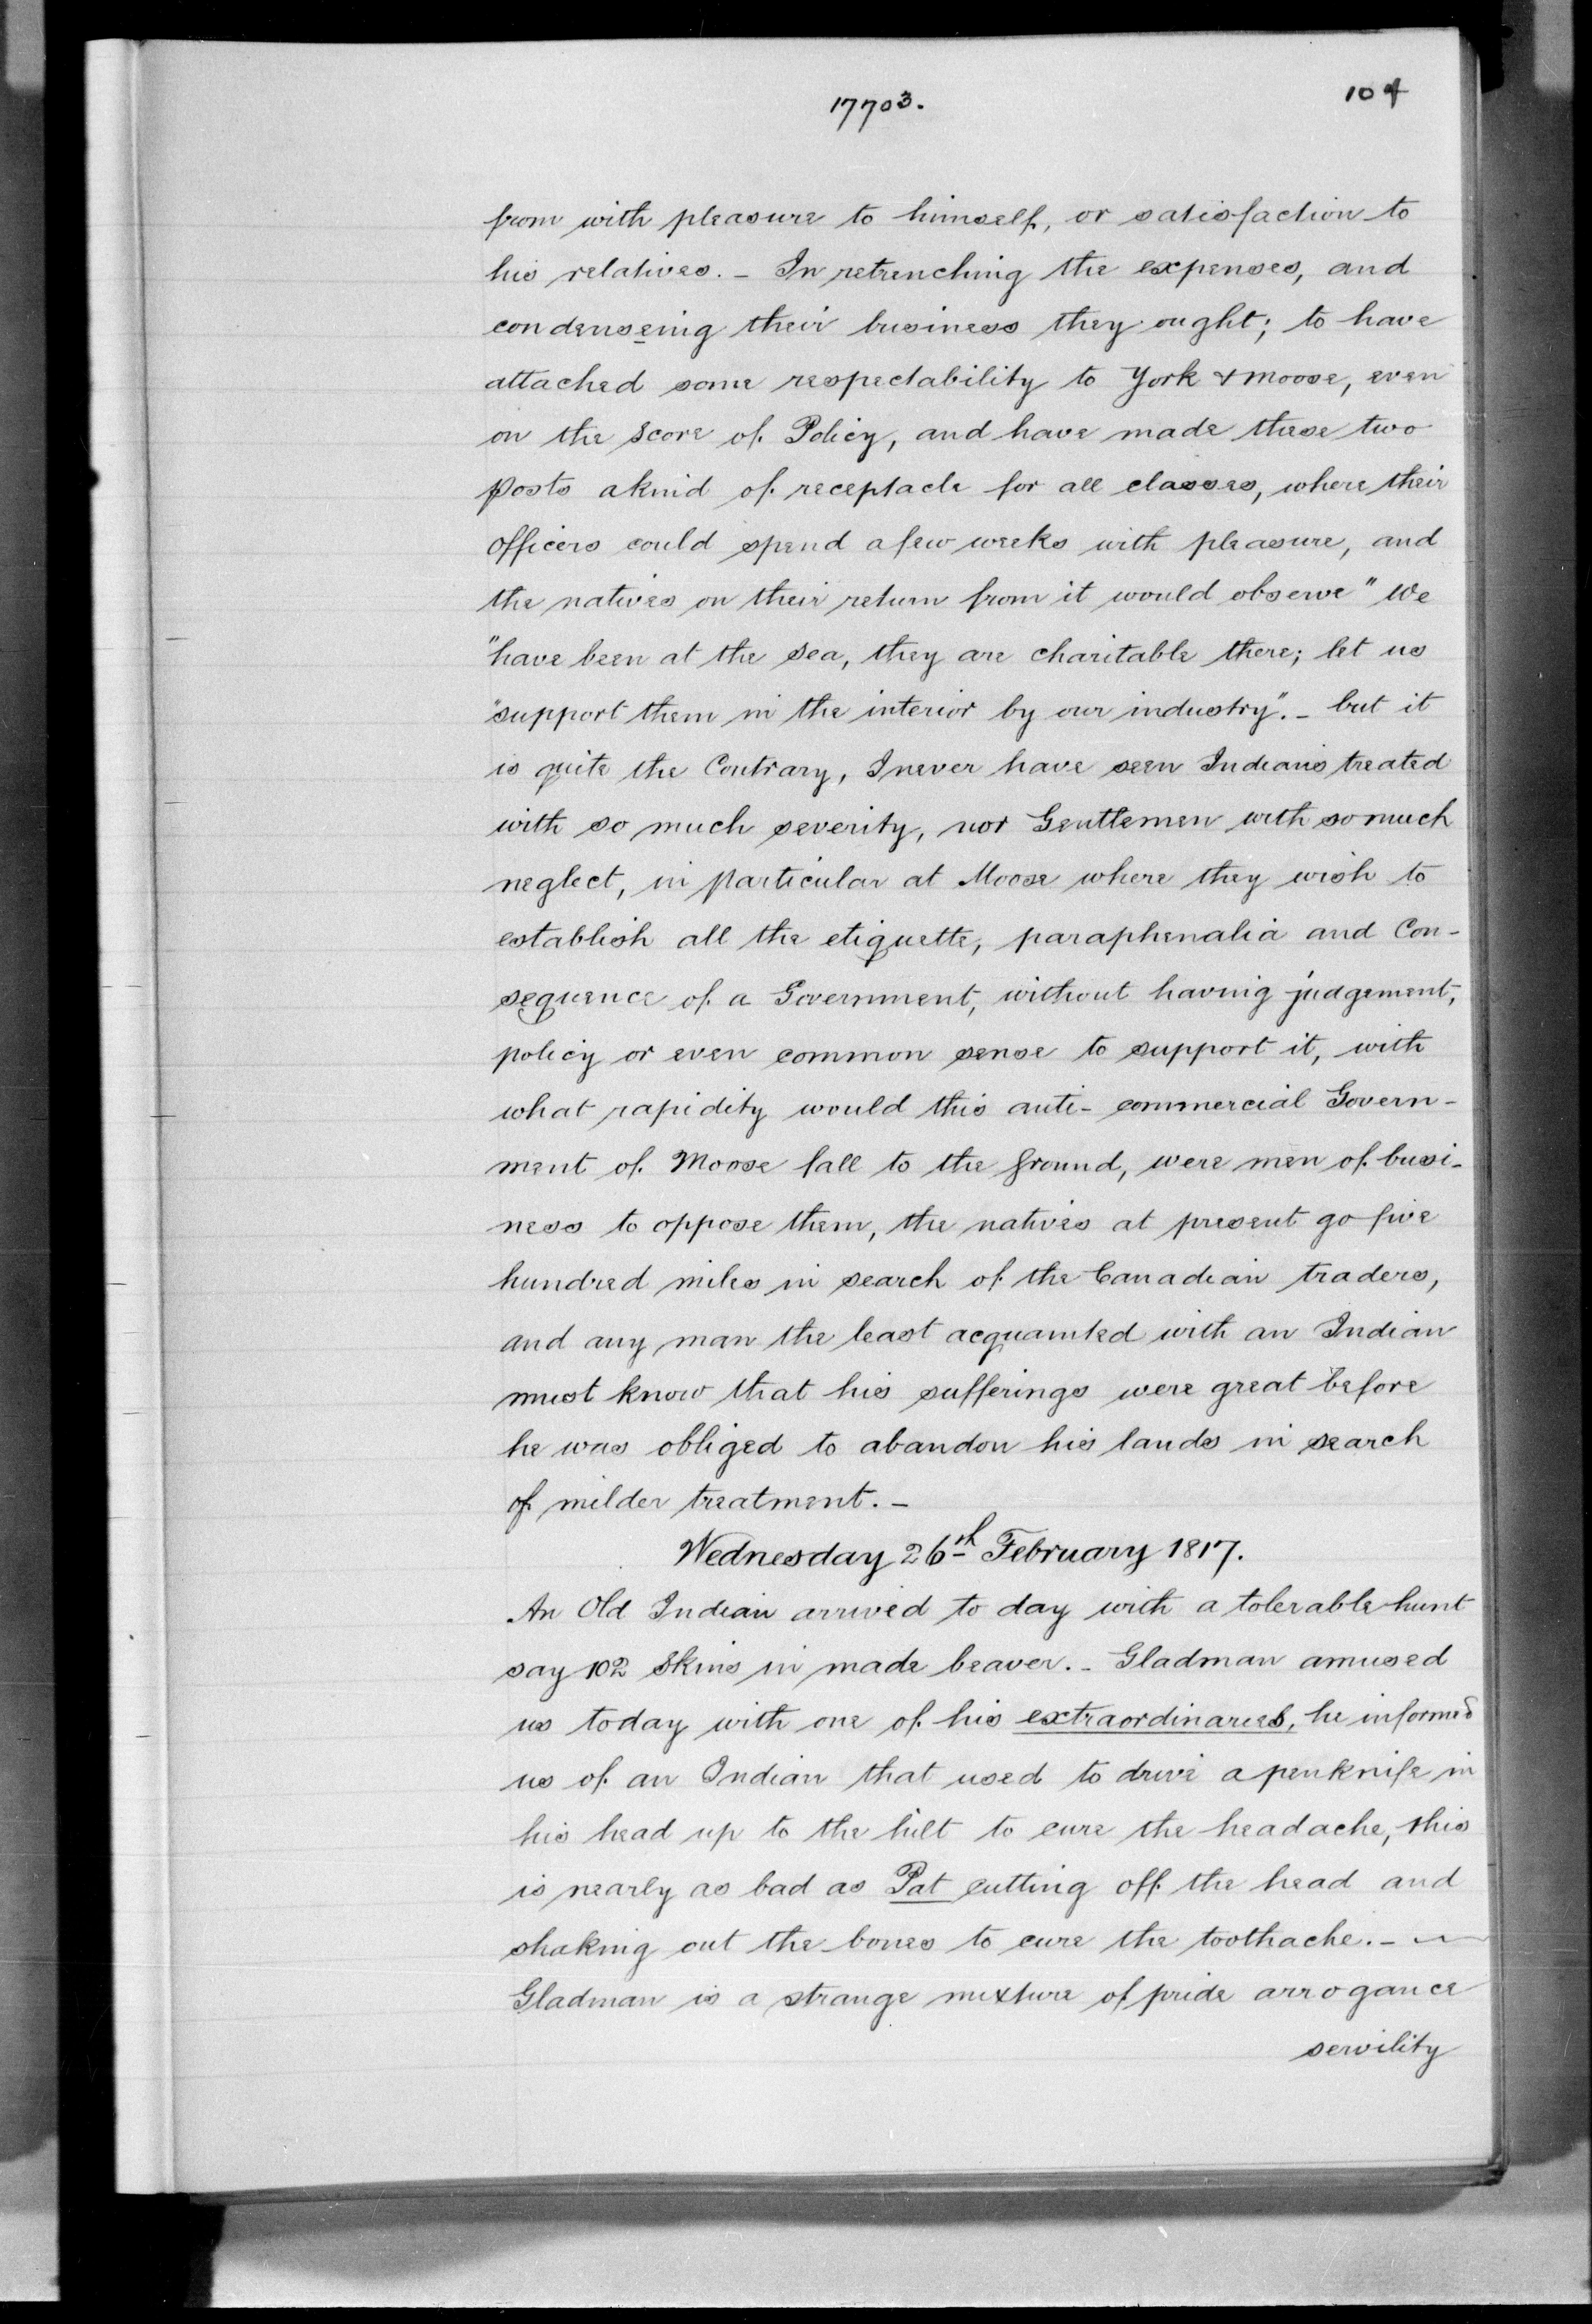 17703.
104
from with pleasure to himself, or satisfaction to
his relatives. - In retrenching the expenses, and
condenseing their business they ought; to have
attached some respectability to York & Moose, even
on the Score of Policy, and have made these two
posts a kind of receptacle for all classes, where their
Officers could spend a few weeks with pleasure, and
the natives on their return from it would observe "We
"have been at the Sea, they are charitable there; let us
"support them in the interior by our industry". - but it
is quite the Contrary, I never have seen Indians treated
with so much severity, nor Gentlemen with so much
neglect, in particular at Moose where they wish to
establish all the etiquette, paraphenalia and Con-
sequence of a Government, without having judgement,
policy or even common sense to support it, with
what rapidity would this anti-commercial Govern-
ment of Moose fall to the ground, were men of busi-
ness to oppose them, the natives at present go five
hundred miles in search of the Canadian traders,
and any man the least acquainted with an Indian
must know that his sufferings were great before
he was obliged to abandon his lands in search
of milder treatment. -
Wednesday 26th February 1817.
An Old Indian arrived to day with a tolerable hunt
say 102 Skins in made beaver. - Gladman amused
us today with one of his extraordinaries, he informed
us of an Indian that used to drive a penknife in
his head up to the hilt to cure the headache, this
is nearly as bad as Pat cutting off the head and
shaking out the bones to cure the toothache. -
Gladman is a strange mixture of pride arrogance
servility